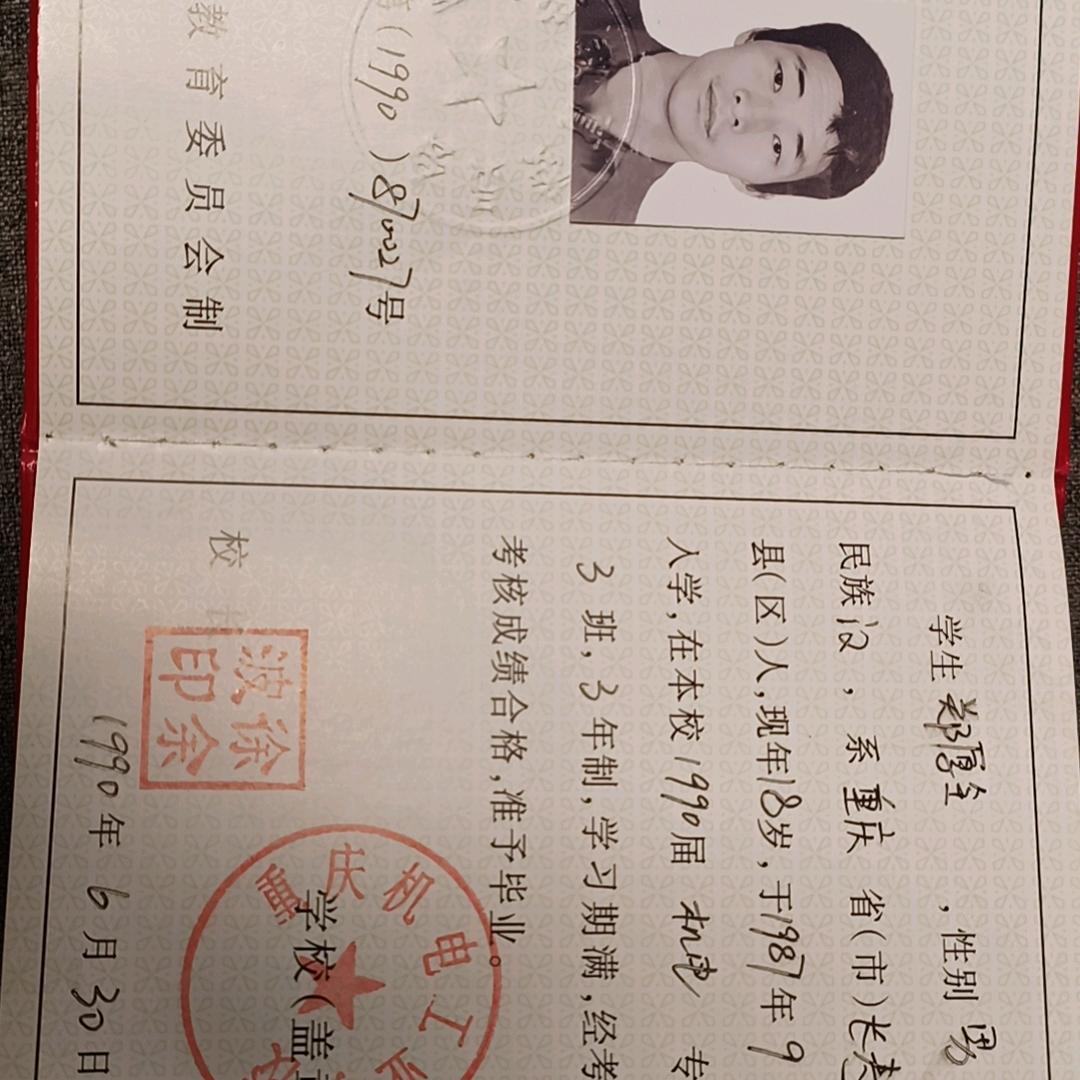 (1990)870027号
教育委员会制
学生郑厚全,性别男
民族汉,系重庆省(市)长寿
县(区)人,现年18岁,于1987年9
入学,在本校1990届机电专
3班,3年制,学习期满,经考
考核成绩合格,准予毕业。
学校(盖
重庆机电工业
校长
徐余波印
1990年6月30日